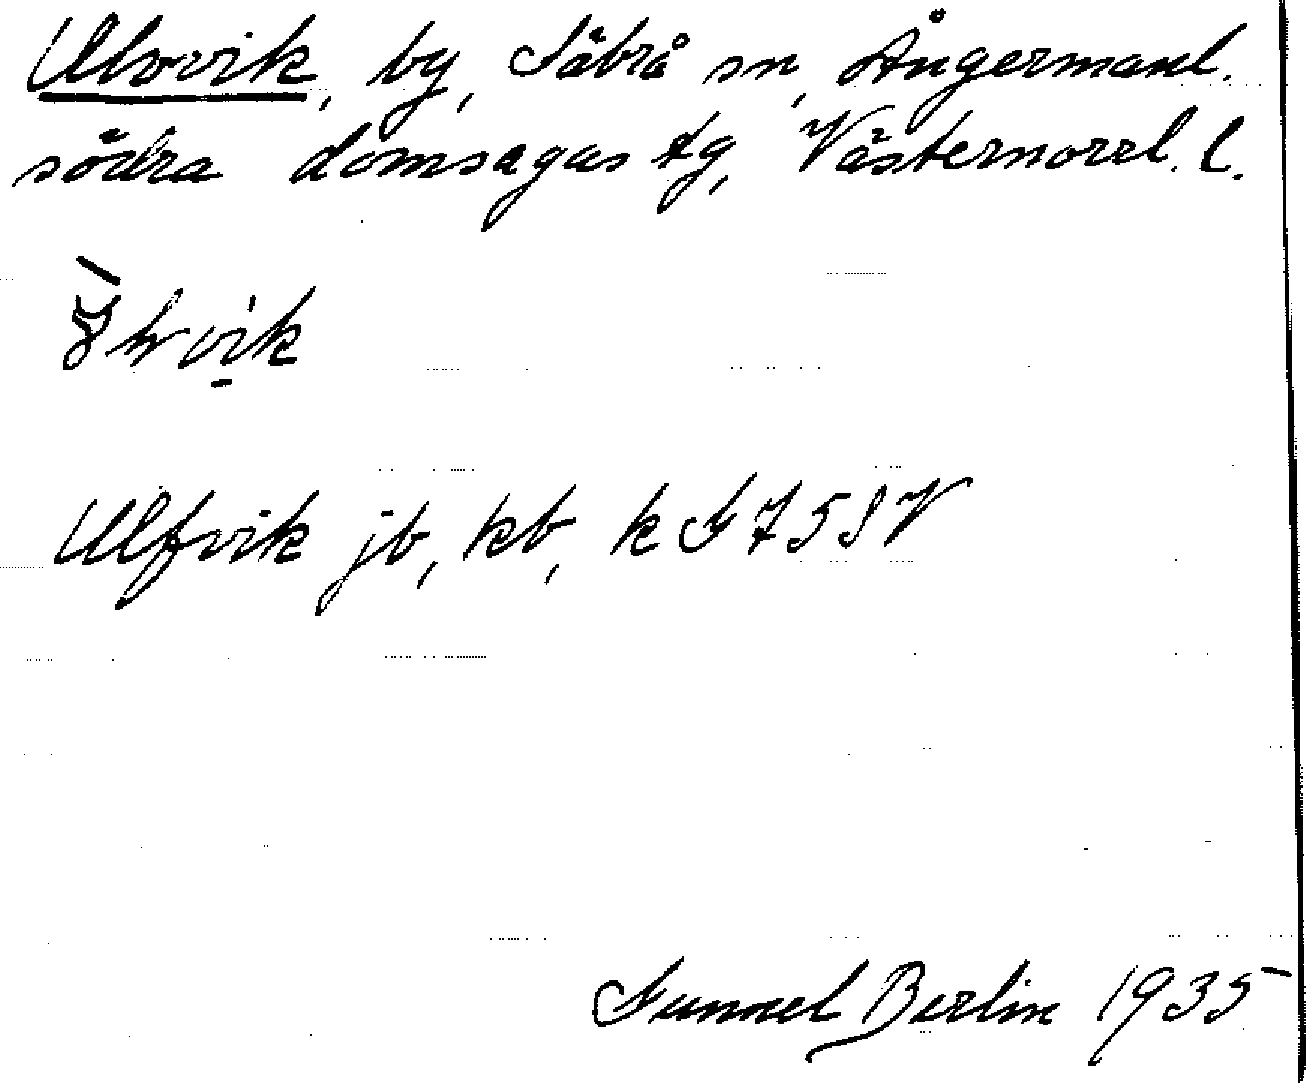 Ulvvik, by, Säbrå sn, Ångermanl.
södra domsagas tg, Västernorrl. l.
Ulfvik jb, kb, k G 75 SV
Gunnel Berlin 1935